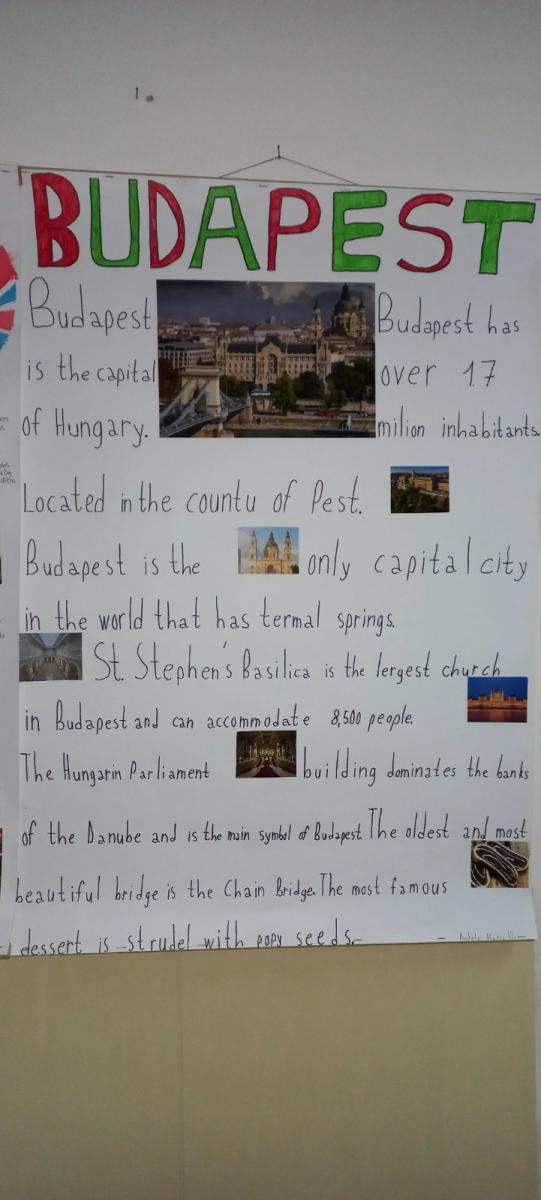 BUDAPEST
Budapest
is the capital
of Hungary.
Budapest has
over 17
milion inhabitants.
Located in the countu of Pest.
Budapest is the only capital city
in the world that has termal springs.
St. Stephen's Basilica is the lergest church
in Budapest and can accommodate 8,500 people.
The Hungarin Parliament building dominates the banks
of the Danube and is the main symbol of Budapest. The oldest and most
beautiful bridge is the Chain Bridge. The most famous
dessert is strudel with popy seeds.